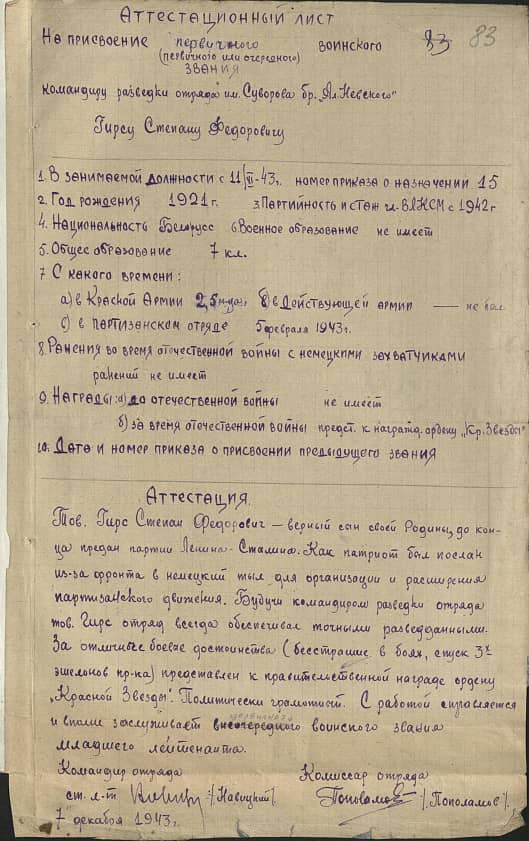 Аттестационный лист
83 83
На присвоение первичного воинского
(первичного или очередного)
звания
командиру разведки отряда им. Суворова бр. „Ал. Невского"
Гирсу Степану Федоровичу
1. В занимаемой должности с 11/VI-43г. номер приказа о назначении 15
2. Год рождения 1921г. 3. Партийность и стаж чл. ВЛКСМ с 1942г
4. Национальность Беларусс 6 Военное образование не имеет
5. Общее образование 7 кл.
7 С какого времени:
а) в Красной Армии 2,5 года, б) в действующей армии — не был
с) в партизанском отряде 5 февраля 1943г.
8. Ранения во время отечественной войны с немецкими захватчиками
ранений не имеет
9. Награды: а) до отечественной войны не имеет
б) за время отечественной войны предст. к награжд. ордену „Кр. Звезды"
10. Дата и номер приказа о присвоении предыдущего звания
Аттестация.
Тов. Гирс Степан Федорович – верный сын своей Родины, до кон-
ца предан партии Ленина-Сталина. Как патриот был послан
из-за фронта в немецкий тыл для организации и расширения
партизанского движения. Будучи командиром разведки отряда
тов. Гирс отряд всегда обеспечивал точными разведданными.
За отличные боевые достоинства (бесстрашие в боях, спуск 3х
эшелонов пр-ка) представлен к правительственной награде ордену
„Красной Звезды". Политически грамотный. С работой справляется
и вполне заслуживает внеочередного первичного воинского звания
младшего лейтенанта.
Командир отряда Комиссар отряда
ст. л-т /Новицкий/. Пополамов /Пополамов/.
7 декабря 1943г.